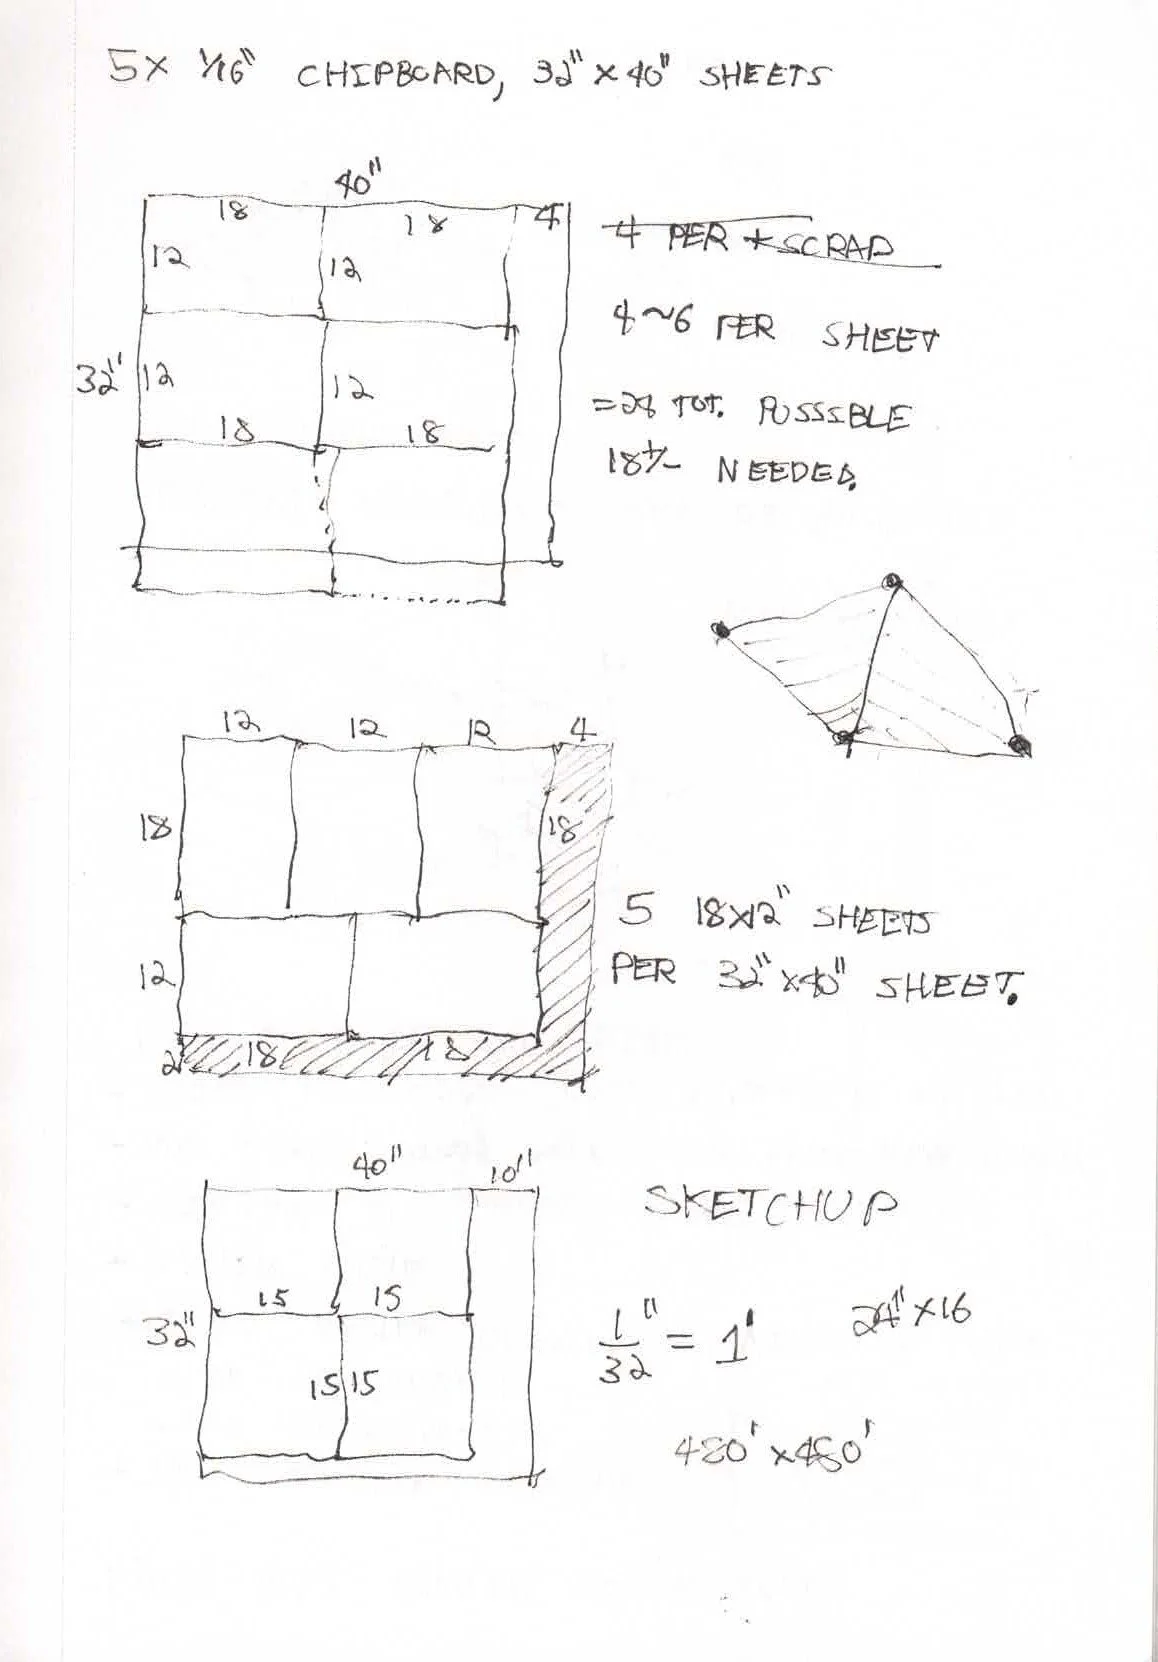 5x 1/16" CHIPBOARD, 32" x 40" SHEETS
40"
18 18 4
12 12
4 PER + SCRAP
4~6 PER SHEET
32" 12 12
=28 TOT. POSSIBLE
18 18
18+/- NEEDED.
12 12 12 4
18 18
5 18x12" SHEETS
12
PER 32"x40" SHEET.
2 18 18
40" 10"
SKETCHUP
15 15
32"
1/32" = 1'
24" x16
15 15
480' x480'